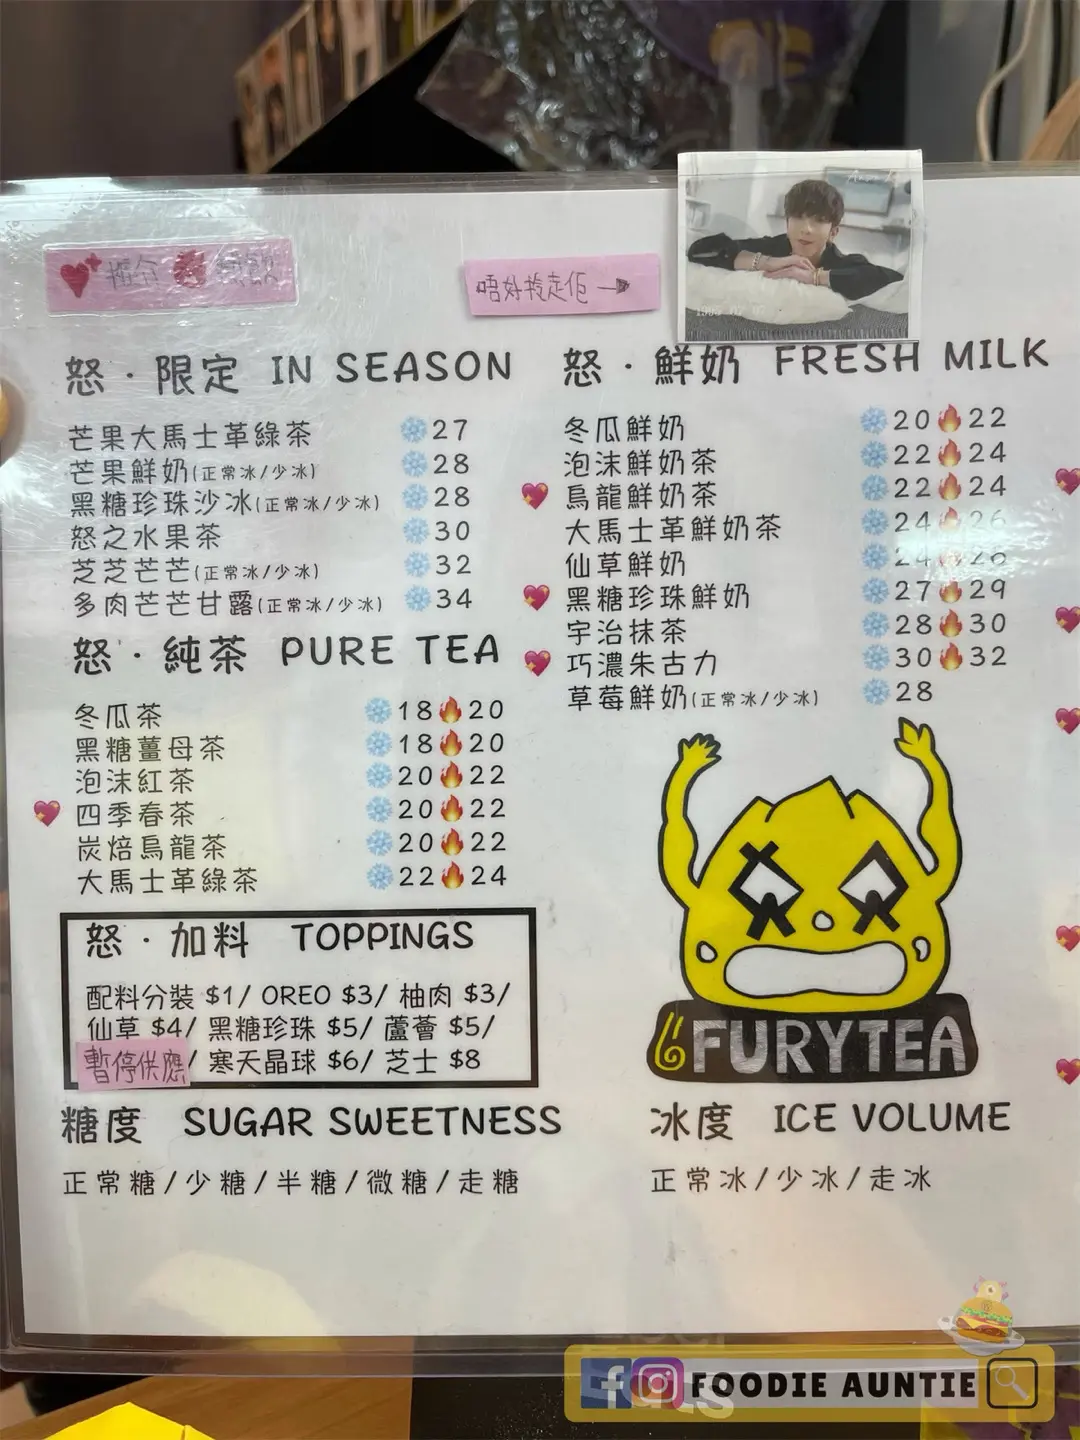 推介
唔好拎走佢 →
怒·限定 IN SEASON
芒果大馬士革綠茶 27
芒果鮮奶(正常冰/少冰) 28
黑糖珍珠沙冰(正常冰/少冰) 28
怒之水果茶 30
芝芝芒芒(正常冰/少冰) 32
多肉芒芒甘露(正常冰/少冰) 34
怒·純茶 PURE TEA
冬瓜茶 18 20
黑糖薑母茶 18 20
泡沫紅茶 20 22
四季春茶 20 22
炭焙烏龍茶 20 22
大馬士革綠茶 22 24
怒·加料 TOPPINGS
配料分裝 $1/ OREO $3/ 柚肉 $3/
仙草 $4/ 黑糖珍珠 $5/ 蘆薈 $5/
暫停供應 / 寒天晶球 $6/ 芝士 $8
糖度 SUGAR SWEETNESS
正常糖/少糖/半糖/微糖/走糖
怒·鮮奶 FRESH MILK
冬瓜鮮奶 20 22
泡沫鮮奶茶 22 24
烏龍鮮奶茶 22 24
大馬士革鮮奶茶 24 26
仙草鮮奶 24 26
黑糖珍珠鮮奶 27 29
宇治抹茶 28 30
巧濃朱古力 30 32
草莓鮮奶(正常冰/少冰) 28
FURYTEA
冰度 ICE VOLUME
正常冰/少冰/走冰
FOODIE AUNTIE